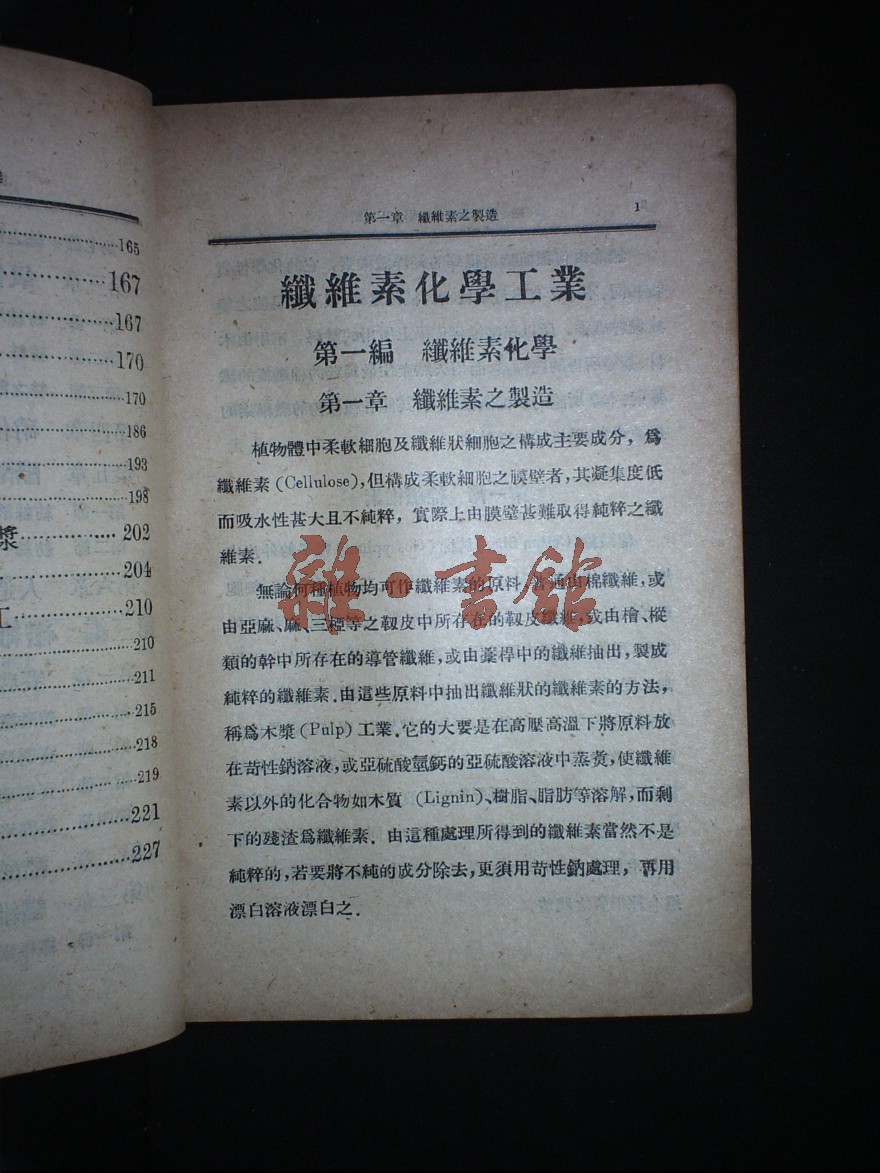 165
167
167
170
170
186
193
198
漿 202
204
工 210
210
211
215
218
219
221
227
第一章 纖維素之製造 1
纖維素化學工業
第一編 纖維素化學
第一章 纖維素之製造
植物體中柔軟細胞及纖維狀細胞之構成主要成分，爲
纖維素(Cellulose)，但構成柔軟細胞之膜壁者，其凝集度低
而吸水性甚大且不純粹，實際上由膜壁甚難取得純粹之纖
維素．
無論何種植物均可作纖維素的原料．普通由棉纖維，或
由亞麻、麻、三椏等之靱皮中所存在的靱皮纖維，或由檜、樅
類的幹中所存在的導管纖維，或由藁桿中的纖維抽出，製成
純粹的纖維素．由這些原料中抽出纖維狀的纖維素的方法，
稱爲木漿(Pulp)工業．它的大要是在高壓高溫下將原料放
在苛性鈉溶液，或亞硫酸氫鈣的亞硫酸溶液中蒸煑，使纖維
素以外的化合物如木質 (Lignin)、樹脂、脂肪等溶解，而剩
下的殘渣爲纖維素．由這種處理所得到的纖維素當然不是
純粹的，若要將不純的成分除去，更須用苛性鈉處理，再用
漂白溶液漂白之．
雜·書館